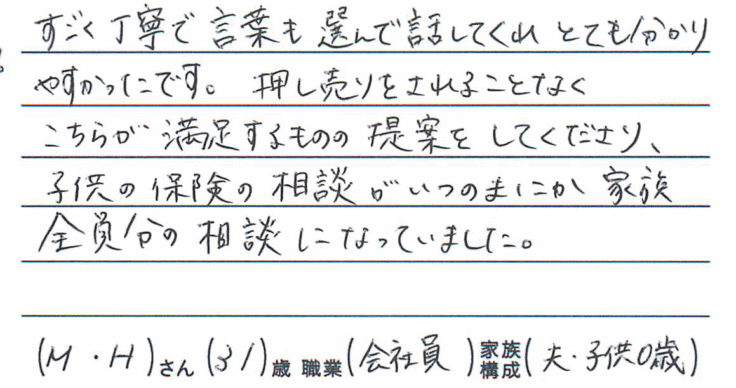 すごく丁寧で言葉も選んで話してくれとても分かり
やすかったです。押し売りをされることなく
こちらが満足するものの提案をしてくださり、
子供の保険の相談がいつのまにか家族
全員分の相談になっていました。
(M・H)さん(31)歳 職業(会社員)家族構成(夫・子供0歳)